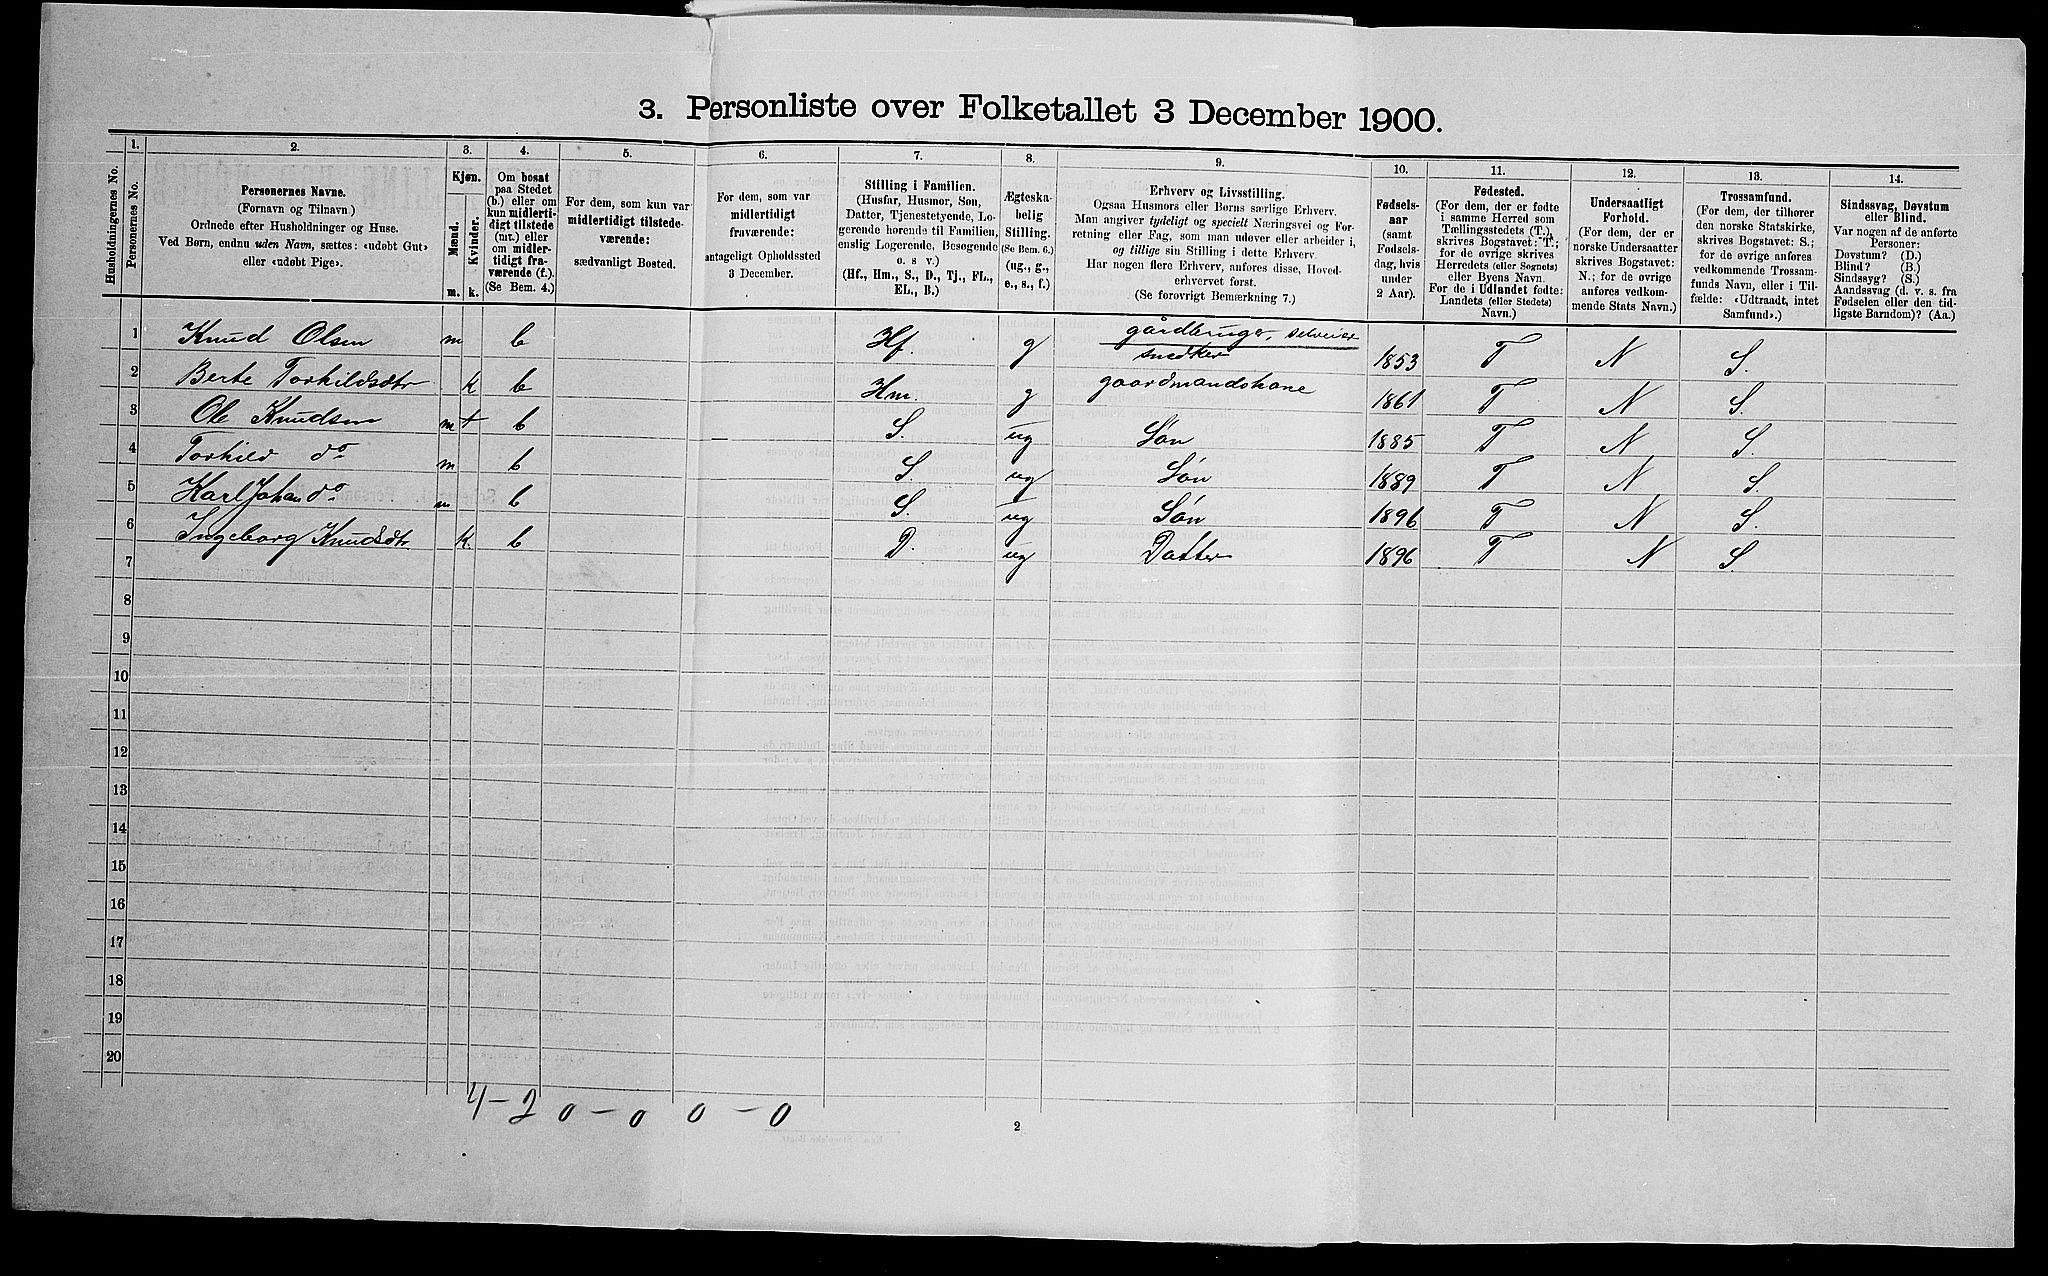 3. Personliste over Folketallet 3 December 1900.
Husholdningernes No.
1. Personernes No.
2. Personernes Navne. (Fornavn og Tilnavn.) Ordnede efter Husholdninger og Huse. Ved Børn, endnu uden Navn, sættes: «udøbt Gut» eller «udøbt Pige».
3. Kjøn. Mænd. m. Kvinder. k.
4. Om bosat paa Stedet (b.) eller om kun midlertidigt tilstede (mt.) eller om midlertidigt fraværende (f.). (Se Bem. 4.)
5. For dem, som kun var midlertidigt tilstedeværende: sædvanligt Bosted.
6. For dem, som var midlertidigt fraværende: antageligt Opholdssted 3 December.
7. Stilling i Familien. (Husfar, Husmor, Søn, Datter, Tjenestetyende, Logerende horende til Familien, enslig Logerende, Besøgende o. s v.) (Hf., Hm., S., D., Tj., FL., EL., B.)
8. Ægteskabelig Stilling. (Se Bem. 6.) (ug., g., e., s., f.)
9. Erhverv og Livsstilling. Ogsaa Husmors eller Børns særlige Erhverv. Man angiver tydeligt og specielt Næringsvei og Forretning eller Fag, som man udøver eller arbeider i, og tillige sin Stilling i dette Erhverv. Har nogen flere Erhverv, anføres disse, Hovederhvervet først. (Se forøvrigt Bemærkning 7.)
10. Fødselsaar (samt Fødselsdag, hvis under 2 Aar).
11. Fødested. (For dem, der er fødte i samme Herred som Tællingsstedets (T.), skrives Bogstavet: T.; for de øvrige skrives Herredets (eller Sognets) eller Byens Navn. For de i Udlandet fødte: Landets (eller Stedets) Navn.)
12. Undersaatligt Forhold. (For dem, der er norske Undersaatter skrives Bogstavet: N.; for de øvrige anføres vedkommende Stats Navn.)
13. Trossamfund. (For dem, der tilhører den norske Statskirke, skrives Bogstavet: S.; for de øvrige anføres vedkommende Trossamfunds Navn, eller i Tilfælde: «Udtraadt, intet Samfund».)
14. Sindssvag, Døvstum eller Blind. Var nogen af de anførte Personer: Døvstum? (D.) Blind? (B.) Sindssyg? (S.) Aandssvag (d. v. s. fra Fødselen eller den tidligste Barndom)? (Aa.)
1 Knud Olsen m b Hf. g gårdbruger, selveier snedker 1853 T N S.
2 Berte Torhildsdtr k b Hm. g gaardmandskone 1861 T N S.
3 Ole Knudsen m + b S. ug Søn 1885 T N S.
4 Torhild do m b S. ug Søn 1889 T N S.
5 Karl Johan do m b S. ug Søn 1896 T N S.
6 Ingeborg Knudsdtr. k. b D. ug Datter 1896 T N S.
7
8
9
10
11
12
13
14
15
16
17
18
19
20
4 - 2 0 - 0 0 - 0
2